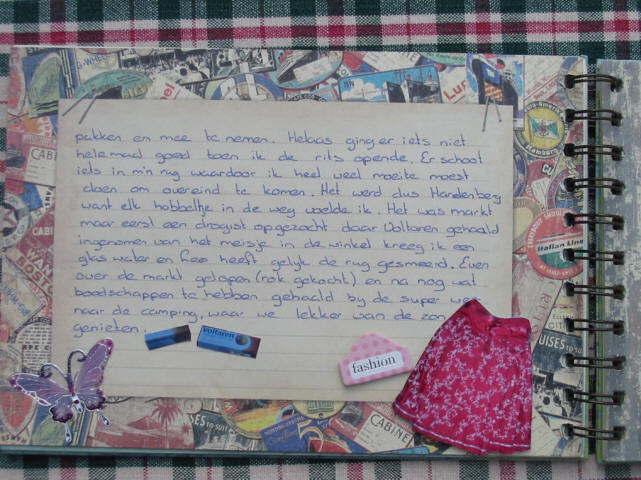 pakken en mee te nemen. Helaas ging er iets niet
helemaal goed toen ik de rits opende. Er schoot
iets in m'n rug waardoor ik heel veel moeite moest
doen om overeind te komen. Het werd dus Hardenberg
want elk hobbeltje in de weg voelde ik. Het was markt
maar eerst een drogist opgezocht daar Voltaren gehaald
ingenomen van het meisje in de winkel kreeg ik een
glas water en Reo heeft gelijk de rug gesmeerd. Even
over de markt gelopen (rok gekocht) en na nog wat
boodschappen te hebben gehaald bij de super weer
naar de camping, waar we lekker van de zon
genieten.
Voltaren
fashion
CABINE
Italian Line
Hamburg